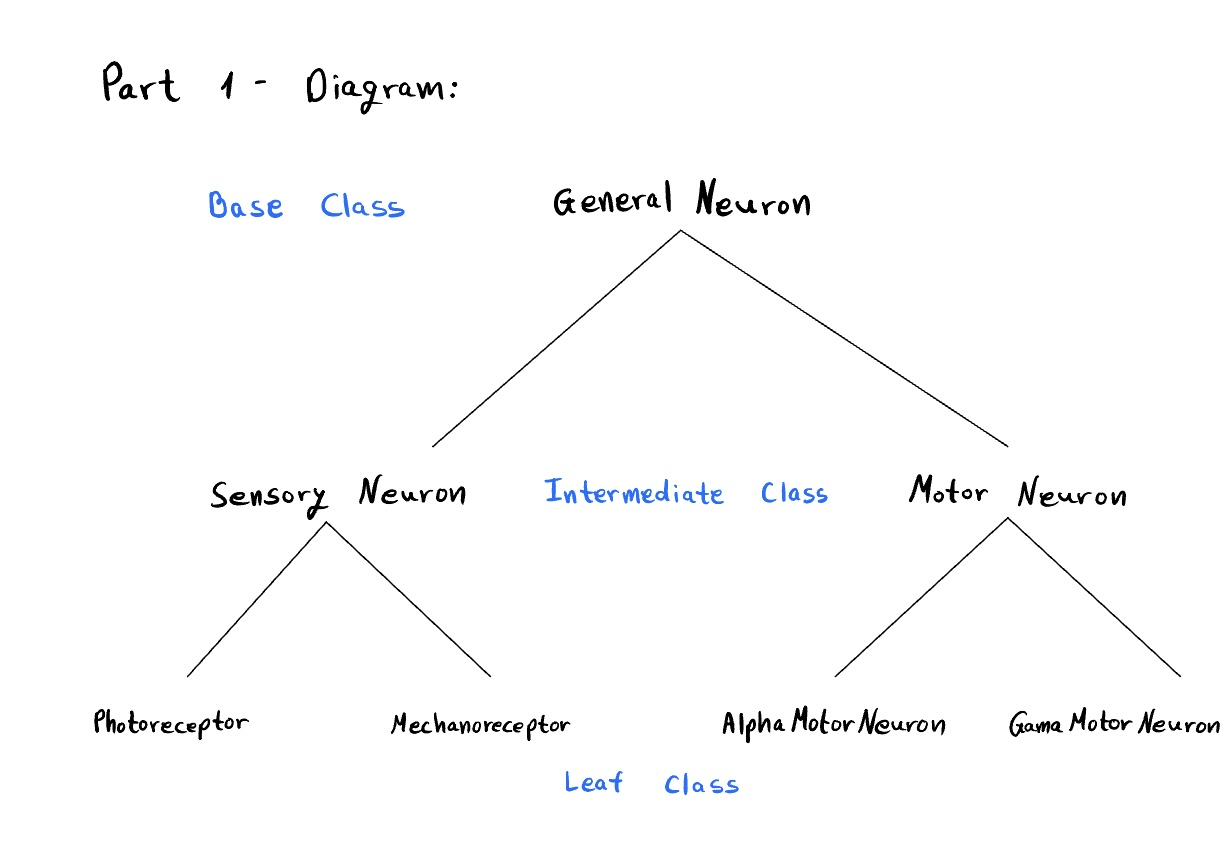 Part 1 - Diagram:
Base Class General Neuron
Sensory Neuron Intermediate Class Motor Neuron
Photoreceptor Mechanoreceptor Alpha Motor Neuron Gama Motor Neuron
Leaf Class